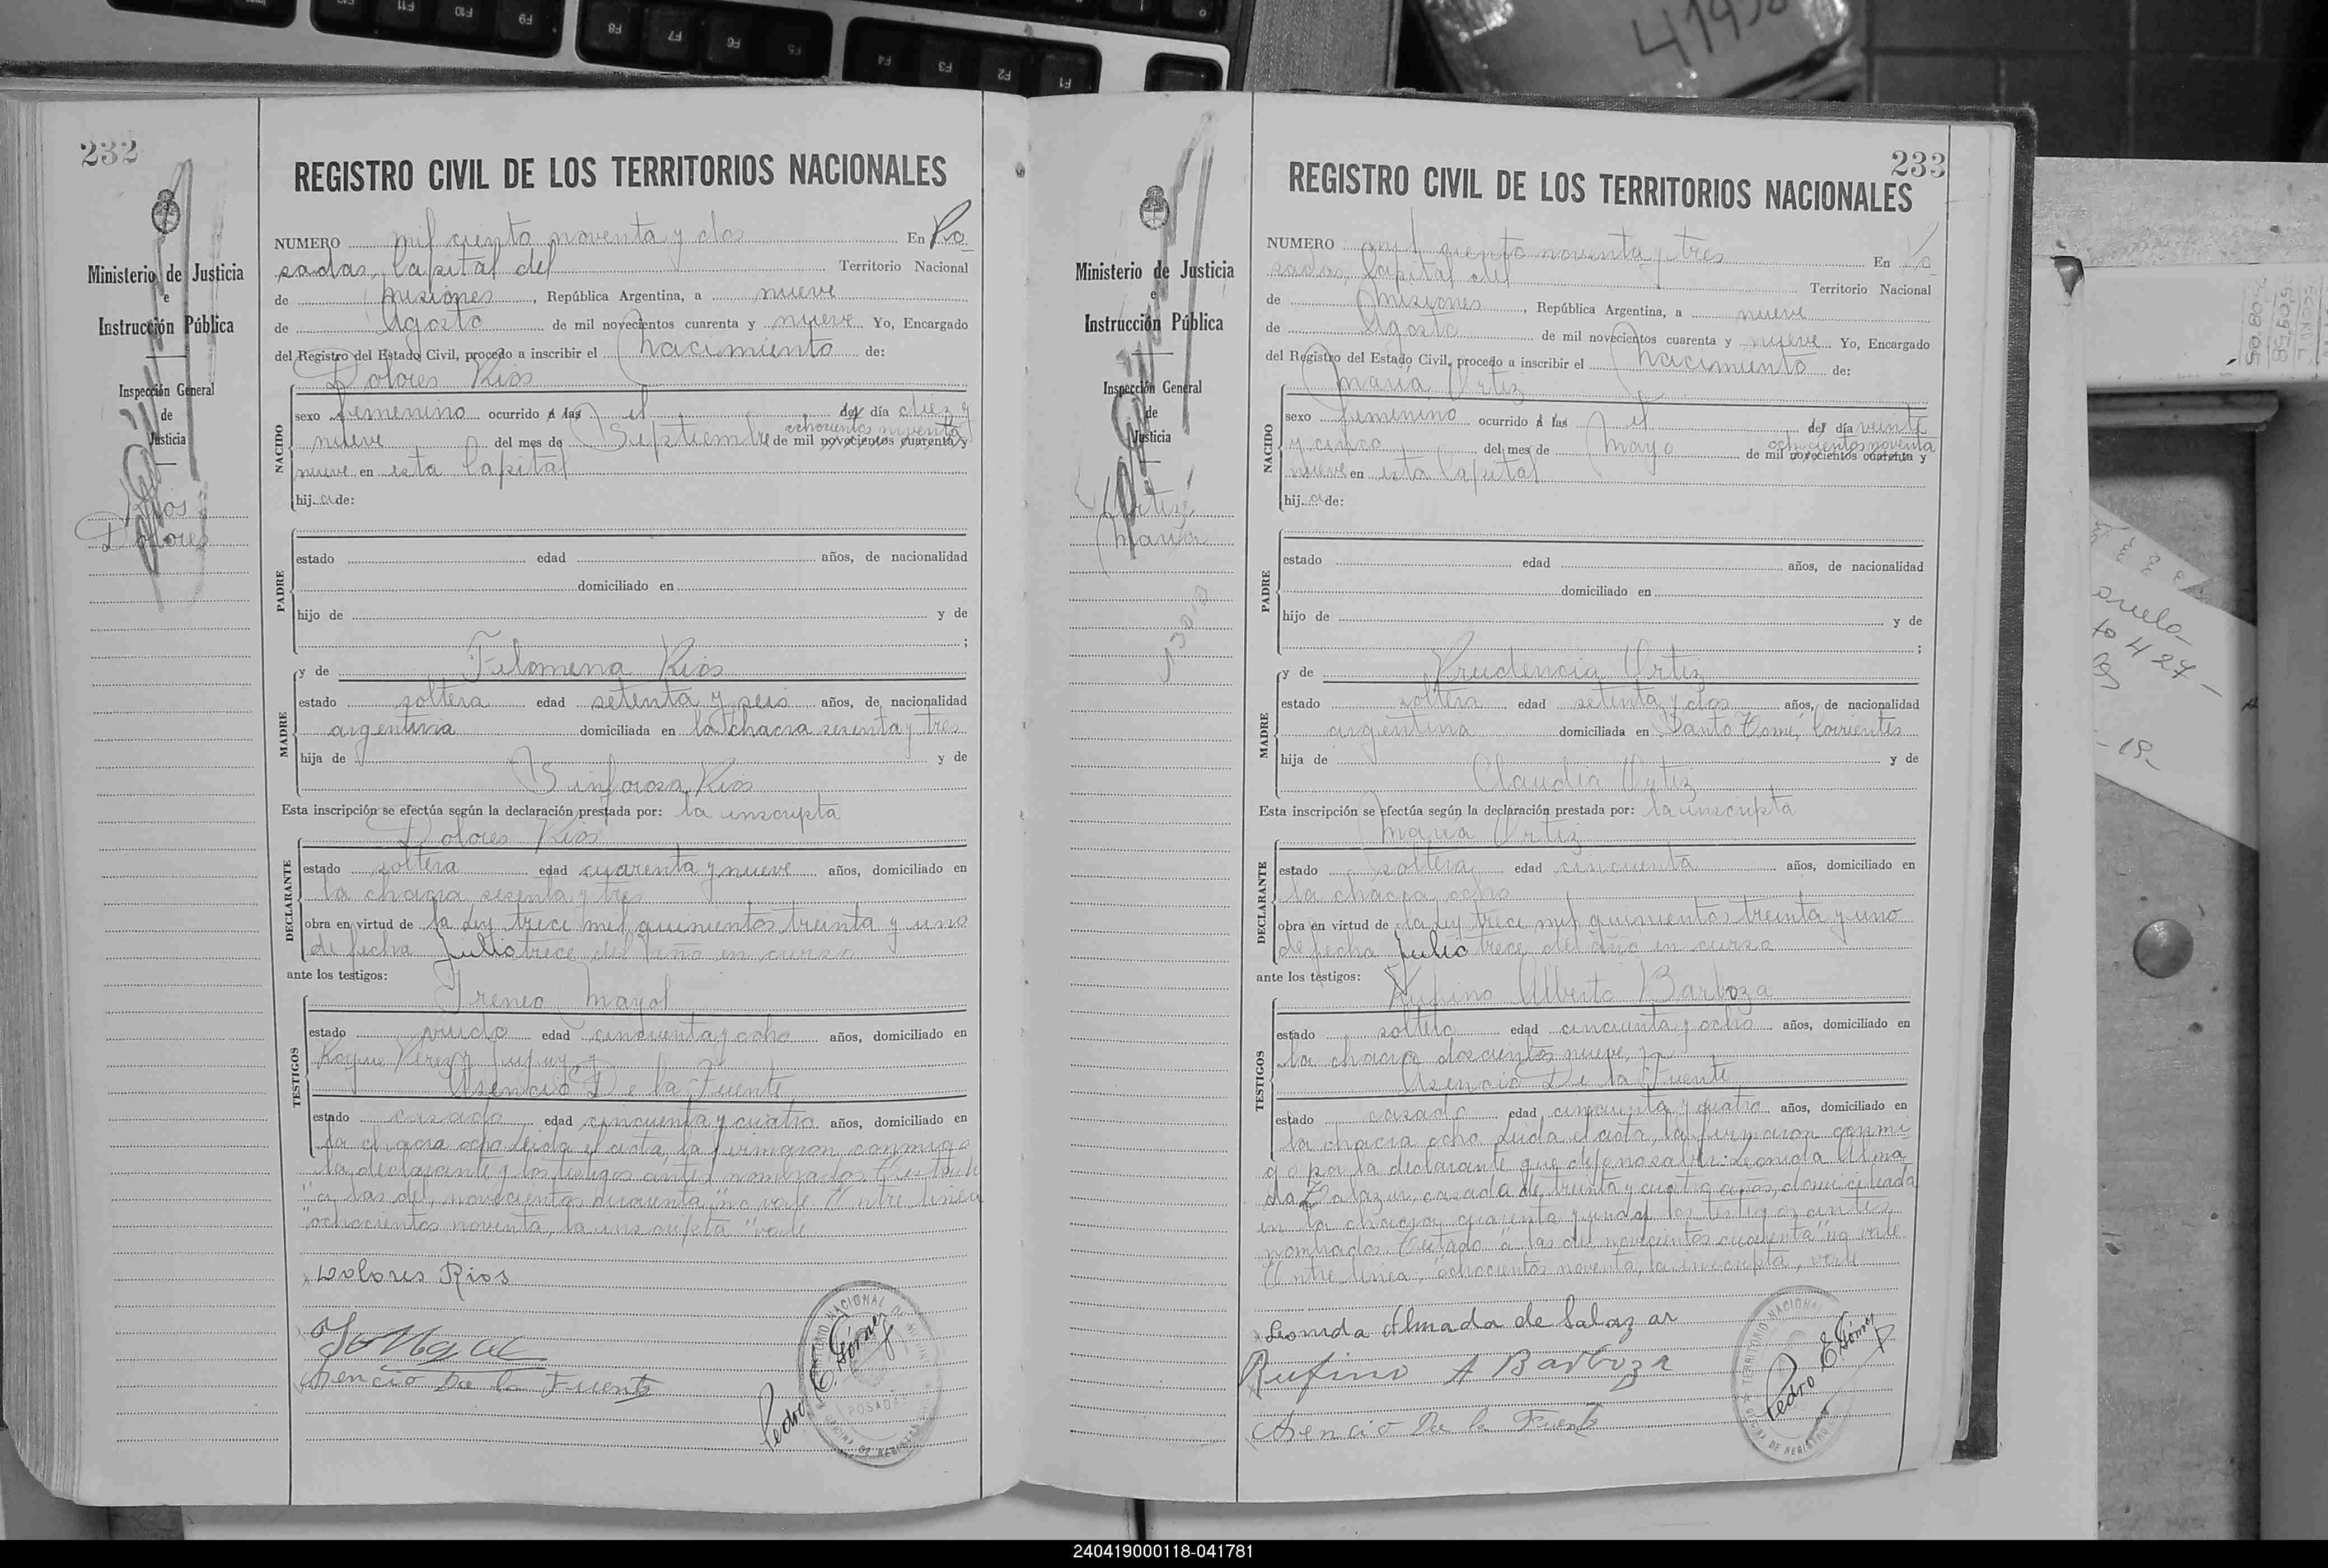 232
REGISTRO CIVIL DE LOS TERRITORIOS NACIONALES
Ministerio de Justicia
e
Instrucción Pública
Inspección General
de
Justicia
Rios
Dolores
NUMERO mil ciento noventa y dos En Po
sadas, Capital del Territorio Nacional
de Misiones, República Argentina, a nueve
de Agosto de mil novecientos cuarenta y nueve Yo, Encargado
del Registro del Estado Civil, procedo a inscribir el Nacimiento de:
Dolores Rios
NACIDO
sexo femenino ocurrido a las el del día diez y
ochocientos noventa
nueve del mes de Septiembre de mil novecientos cuarenta y
nueve en esta Capital
hija de:
PADRE
estado edad años, de nacionalidad
domiciliado en
hijo de y de
;
MADRE
y de Filomena Rios
estado soltera edad setenta y seis años, de nacionalidad
argentina domiciliada en la chacra sesenta y tres
hija de y de
Sinforosa Rios
Esta inscripción se efectúa según la declaración prestada por: la inscripta
Dolores Rios
DECLARANTE
estado soltera edad cuarenta y nueve años, domiciliado en
la chacra sesenta y tres
obra en virtud de la Ley trece mil quinientos treinta y uno
de fecha Julio trece del año en curso
ante los testigos:
TESTIGOS
Ireneo Mayol
estado viudo edad cincuenta y ocho años, domiciliado en
Roque Perez y Jujuy y
Asencio De la Fuente
estado casado edad cincuenta y cuatro años, domiciliado en
la chacra ocho Leida el acta, la firmaron conmigo
la declarante y los testigos antes nombrados Testado
"a las del, novecientos cuarenta" no vale Entre linea
"ochocientos noventa, la inscripta" vale
Dolores Rios
Asencio De la Fuente
Pedro E. Gómez
TERRITORIO NACIONAL DE MISIONES
POSADAS
OFICINA DE REGISTRO
233
REGISTRO CIVIL DE LOS TERRITORIOS NACIONALES
Ministerio de Justicia
e
Instrucción Pública
Inspección General
de
Justicia
Ortiz
Maria
NUMERO mil ciento noventa y tres En Po
sadas, Capital del Territorio Nacional
de Misiones, República Argentina, a nueve
de Agosto de mil novecientos cuarenta y nueve Yo, Encargado
del Registro del Estado Civil, procedo a inscribir el Nacimiento de:
Maria Ortiz
NACIDO
sexo femenino ocurrido a las el del día veinte
ochocientos noventa
y cinco del mes de Mayo de mil novecientos cuarenta y
nueve en esta Capital
hija de:
PADRE
estado edad años, de nacionalidad
domiciliado en
hijo de y de
;
MADRE
y de Prudencia Ortiz
estado soltera edad setenta y dos años, de nacionalidad
argentina domiciliada en Santo Tomé, Corrientes
hija de y de
Claudia Ortiz
Esta inscripción se efectúa según la declaración prestada por: la inscripta
Maria Ortiz
DECLARANTE
estado soltera edad cincuenta años, domiciliado en
la chacra ocho
obra en virtud de la Ley trece mil quinientos treinta y uno
de fecha Julio trece del año en curso
ante los testigos:
TESTIGOS
Rufino Alberto Barboza
estado soltero edad cincuenta y ocho años, domiciliado en
la chacra doscientos nueve, y
Asencio De la Fuente
estado casado edad cincuenta y cuatro años, domiciliado en
la chacra ocho Leida el acta, la firmaron conmi
go por la declarante que dijo no saber: Leonida Alma
da Salazar, casada de treinta y cuatro años, domiciliada
en la chacra cuarenta y una y los testigos antes
nombrados Testado "a las del novecientos cuarenta" no vale
Entre linea: "ochocientos noventa, la inscripta", vale
Leonida Almada de Salazar
Rufino A Barboza
Asencio De la Fuente
Pedro E. Gómez
TERRITORIO NACIONAL
OFICINA DE REGISTRO
240419000118-041781